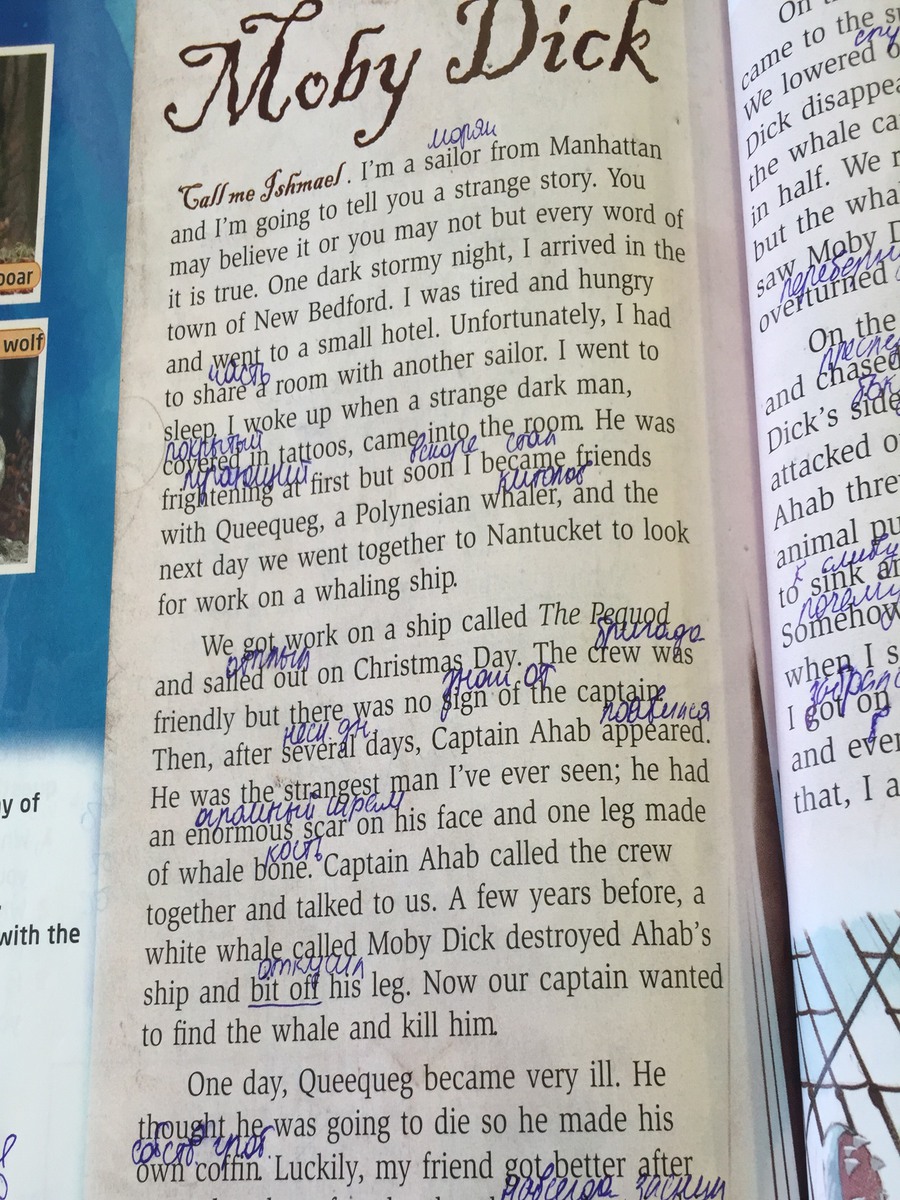 Moby Dick
моряк
Call me Ishmael. I'm a sailor from Manhattan
and I'm going to tell you a strange story. You
may believe it or you may not but every word of
it is true. One dark stormy night, I arrived in the
town of New Bedford. I was tired and hungry
and went to a small hotel. Unfortunately, I had
часть
to share a room with another sailor. I went to
sleep. I woke up when a strange dark man,
покрытый
covered in tattoos, came into the room. He was
пугающий вскоре стал
frightening at first but soon I became friends
китолов
with Queequeg, a Polynesian whaler, and the
next day we went together to Nantucket to look
for work on a whaling ship.
We got work on a ship called The Pequod
отплыл бригада
and sailed out on Christmas Day. The crew was
знак от
friendly but there was no sign of the captain.
неск. дн. появился
Then, after several days, Captain Ahab appeared.
He was the strangest man I've ever seen; he had
огромный шрам
an enormous scar on his face and one leg made
кость
of whale bone. Captain Ahab called the crew
together and talked to us. A few years before, a
white whale called Moby Dick destroyed Ahab's
откусил
ship and bit off his leg. Now our captain wanted
to find the whale and kill him.
One day, Queequeg became very ill. He
thought he was going to die so he made his
own coffin. Luckily, my friend got better after
boar
wolf
y of
with the
On
came to the
We lowered
Dick disappea
the whale ca
in half. We
but the wha
saw Moby D
overturned
On the
and chased
Dick's side
attacked o
Ahab threw
animal pu
to sink an
почему
Somehow
when I s
I got on
and ever
that, I a